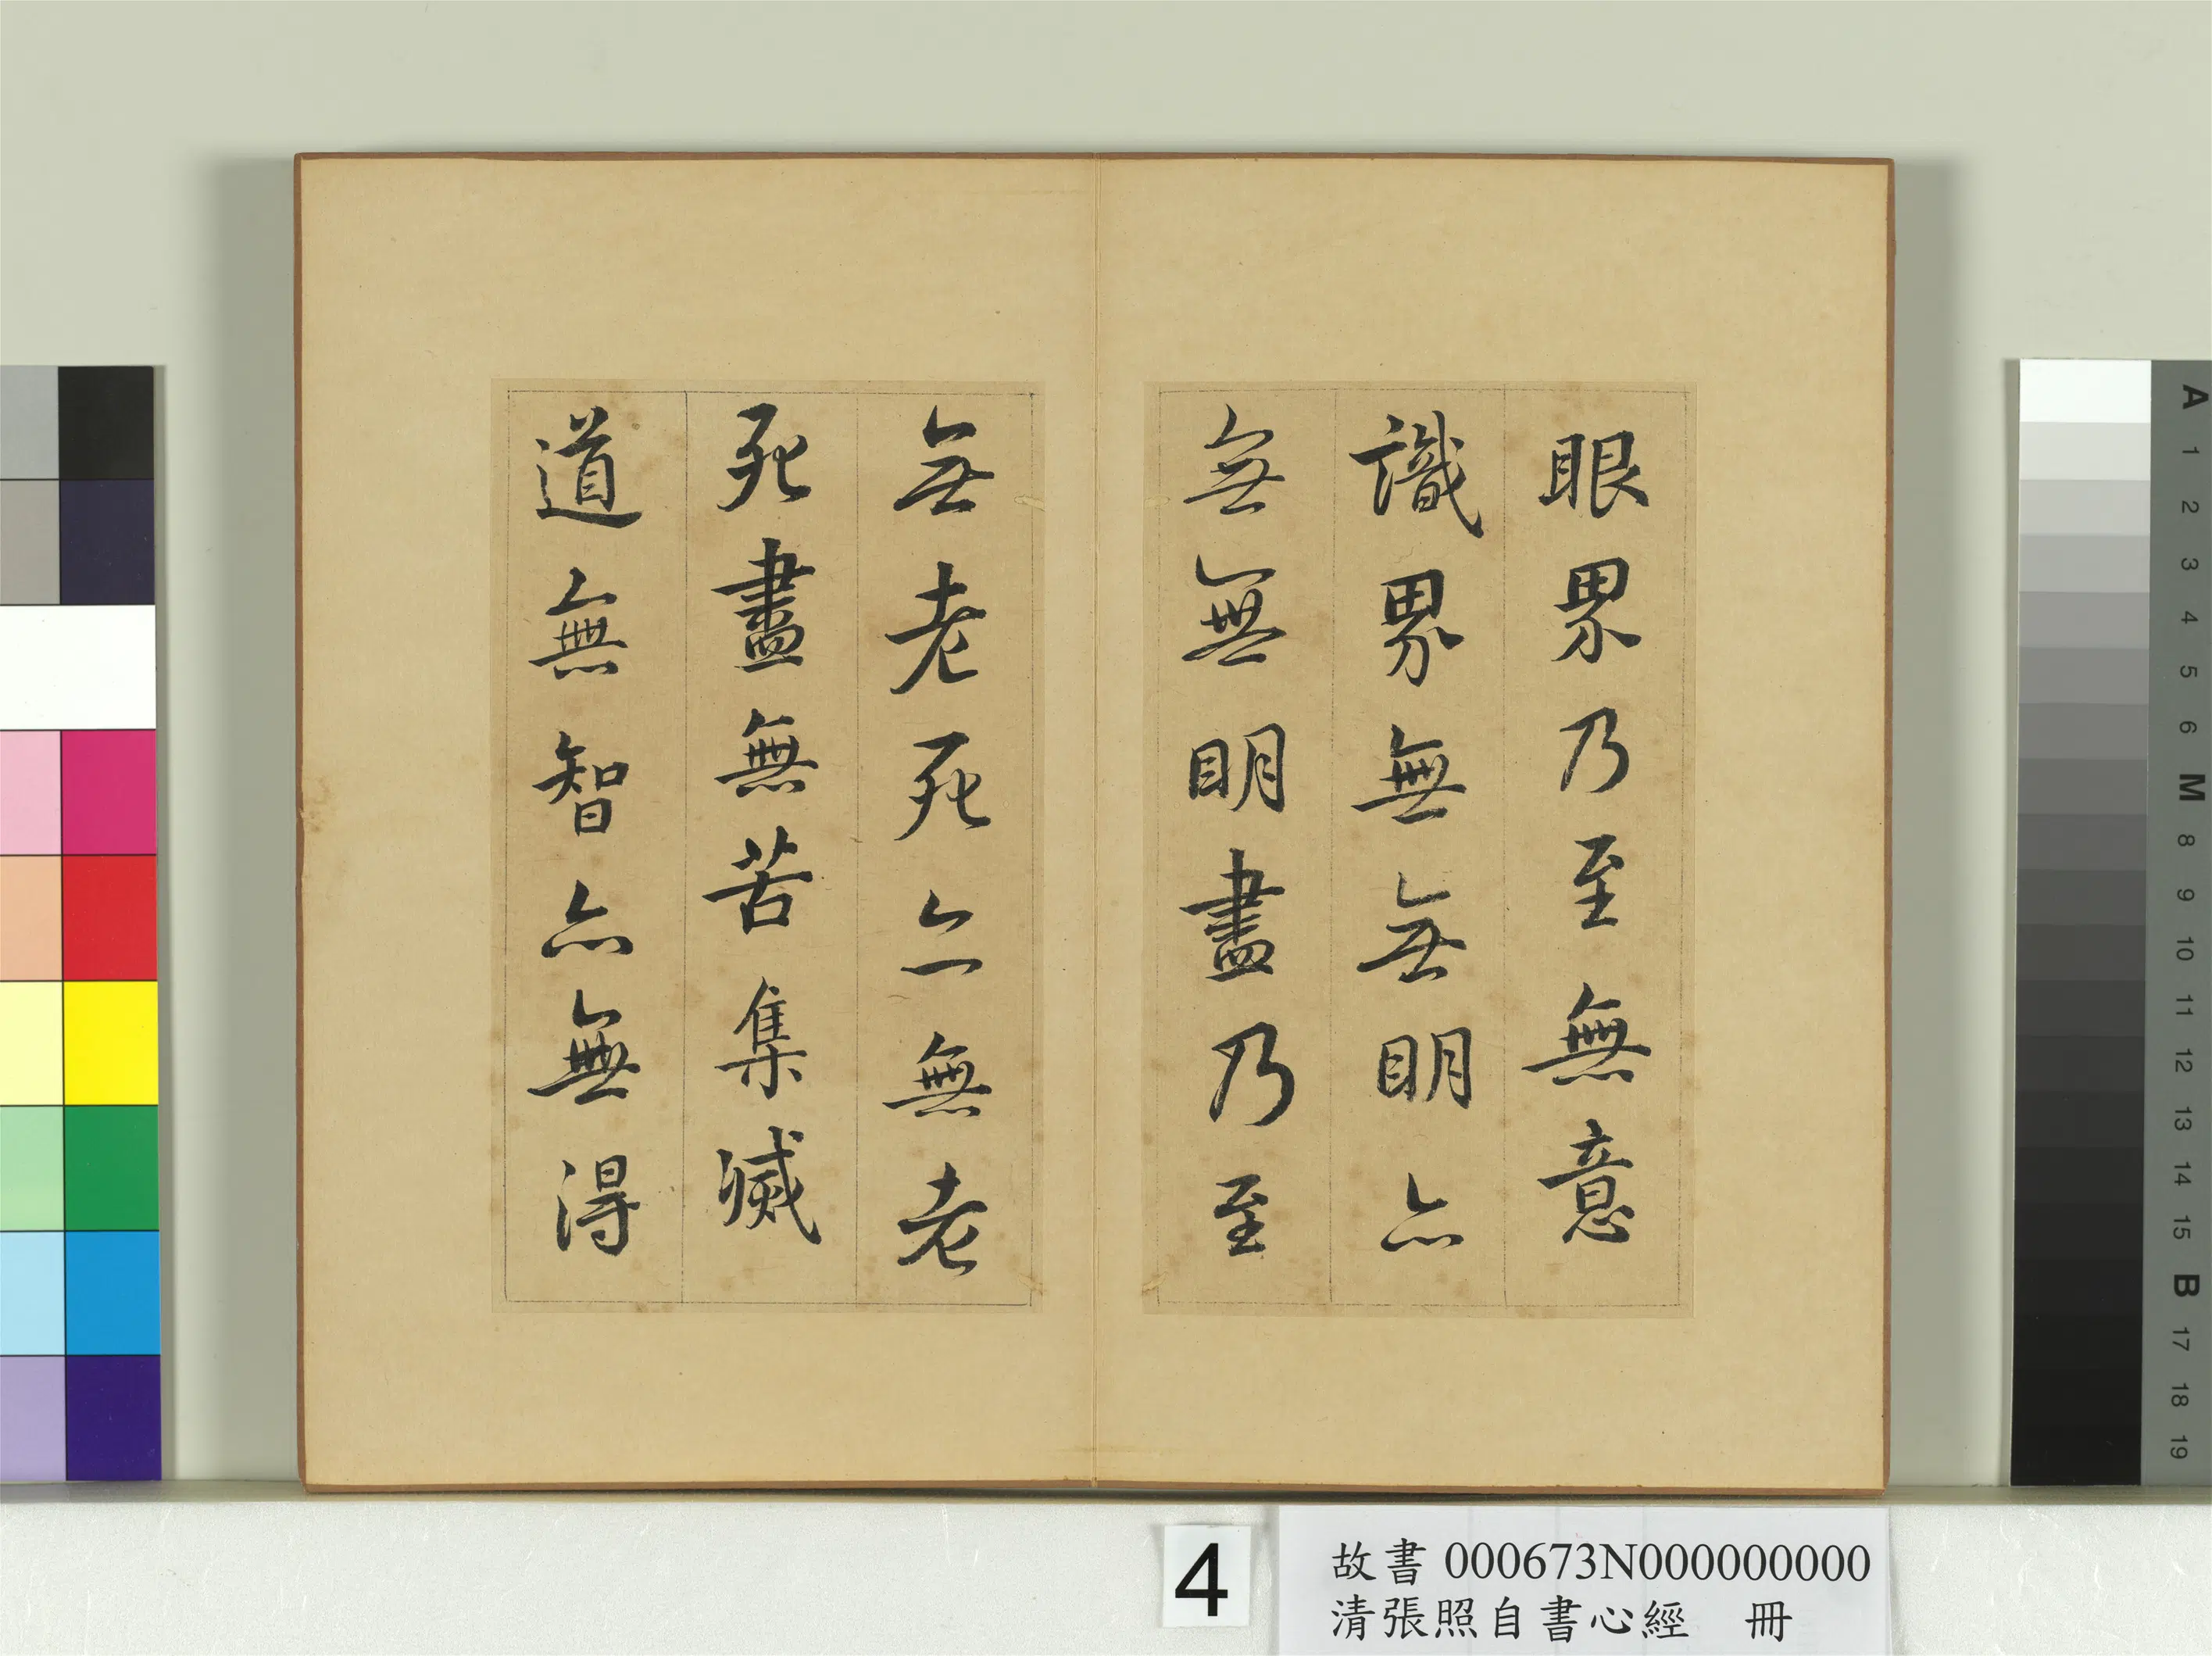 眼界乃至無意
識界無無明亦
無無明盡乃至
無老死亦無老
死盡無苦集滅
道無智亦無得
4
故書 000673N000000000
清張照自書心經 冊
A
1
2
3
4
5
6
M
8
9
10
11
12
13
14
15
B
17
18
19